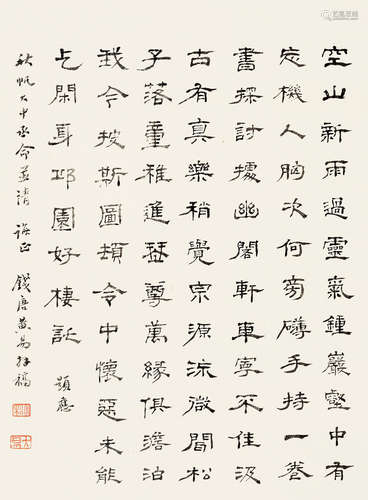 空山新雨過靈氣鍾巖壑中有
忘機人胸次何旁礴手持一卷
書探討據幽閣軒車寧不佳汲
古有真樂稍覺宗源流微聞松
子落童稚進琴尊萬緣俱澹泊
我今披斯圖頓令中懷惡未能
乞閑身邱園好棲託 題應
秋帆大中丞命並請 誨正 錢唐黃易拜稿